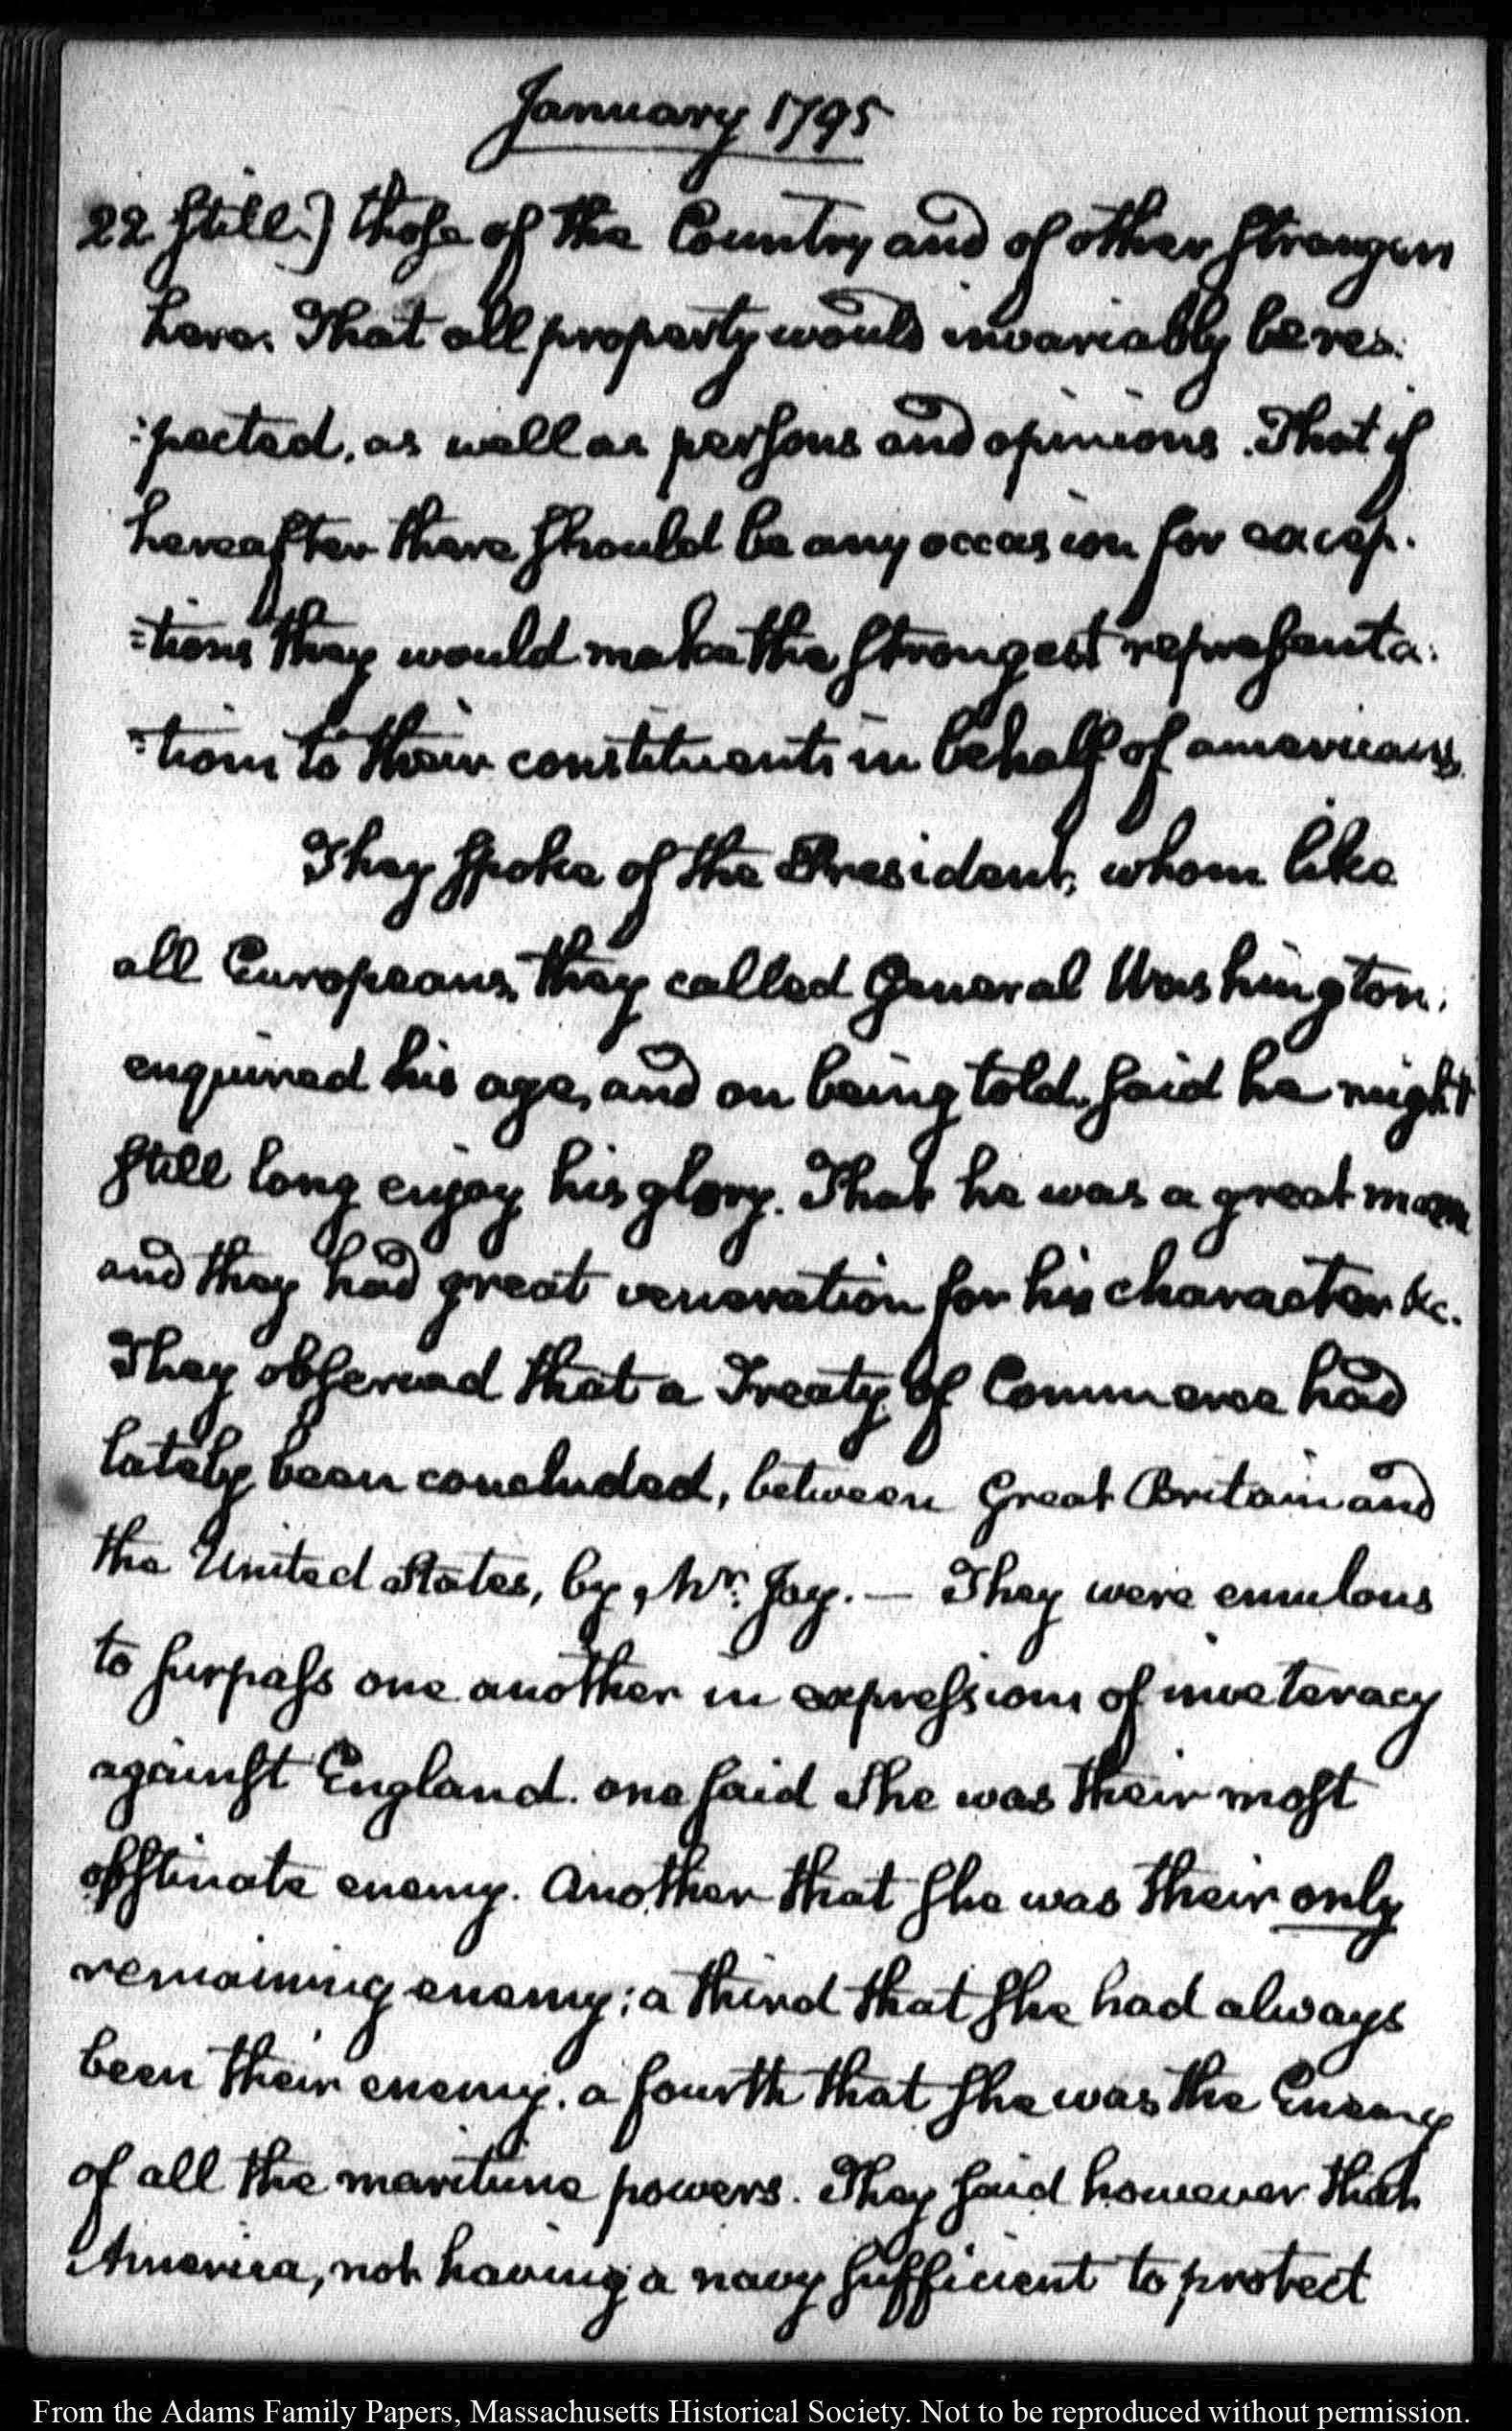 January 1795
22 still.) those of the Country and of other strangers
here. That all property would invariably be res:
:pected, as well as persons and opinions. That if
hereafter there should be any occasion for excep:
=tions they would make the strongest representa:
=tions to their constituents in behalf of americans.
They spoke of the President, whom like
all Europeans, they called General Washington,
enquired his age, and on being told, said he might
still long enjoy his glory. That he was a great man
and they had great veneration for his character &c.
They observed that a Treaty of Commerce had
lately been concluded, between Great Britain and
the United States, by, Mr. Jay. — They were emulous
to surpass one another in expressions of inveteracy
against England. one said she was their most
obstinate enemy. Another that she was their only
remaining enemy; a third that she had always
been their enemy. a fourth that she was the Enemy
of all the maritime powers. They said however that
America, not having a navy sufficient to protect
From the Adams Family Papers, Massachusetts Historical Society. Not to be reproduced without permission.